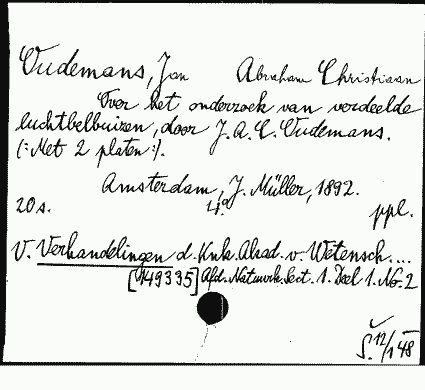 Oudemans, Jan Abraham Christiaan
Over het onderzoek van verdeelde
luchtbelbuizen, door J. A. C. Oudemans.
(:Met 2 platen:).
Amsterdam, J. Müller, 1892.
20 s. 4° ppl.
V. Verhandelingen d. Knk. Akad. v. Wetensch....
Afd. Natuurk. Sect. 1. Deel 1. No. 2
Š. 12/1 48